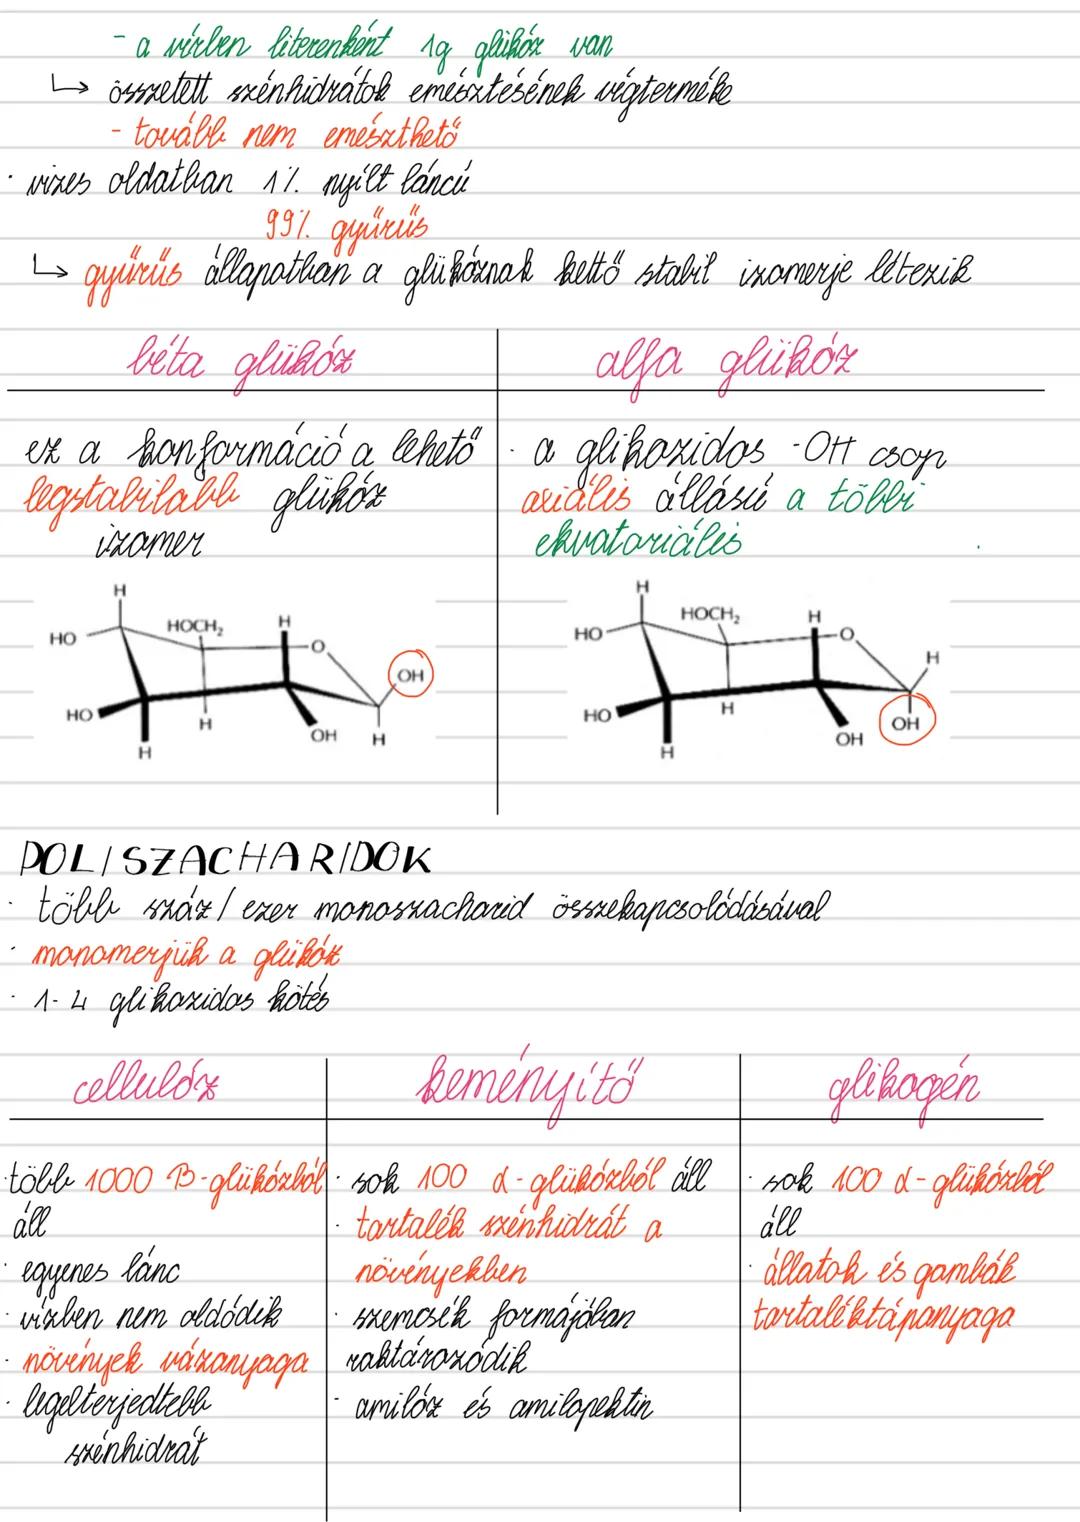 - a vérben literenként 1g glükóz van
↳ összetett szénhidrátok emésztésének végterméke
- tovább nem emészthető
· vizes oldatban 1% nyílt láncú
99% gyűrűs
↳ gyűrűs állapotban a glükóznak kettő stabil izomerje létezik
béta glükóz
ez a konformáció a lehető
legstabilabb glükóz
izomer
H
HO
HOCH₂
H
O
OH
HO
H
OH
H
H
alfa glükóz
· a glikozidos -OH csop
axiális állású a többi
ekvatoriális
H
HO
HOCH₂
H
O
H
HO
H
OH
OH
H
POLISZACHARIDOK
· több száz/ezer monoszacharid összekapcsolódásával
· monomerjük a glükóz
· 1-4 glikozidos kötés
cellulóz
· több 1000 β-glükózból
áll
· egyenes lánc
· vízben nem oldódik
· növények vázanyaga
· legelterjedtebb
szénhidrát
keményítő
· sok 100 α-glükózból áll
· tartalék szénhidrát a
növényekben
· szemcsék formájában
raktározódik
· amilóz és amilopektin
glikogén
· sok 100 α-glükózból
áll
· állatok és gombák
tartaléktápanyaga